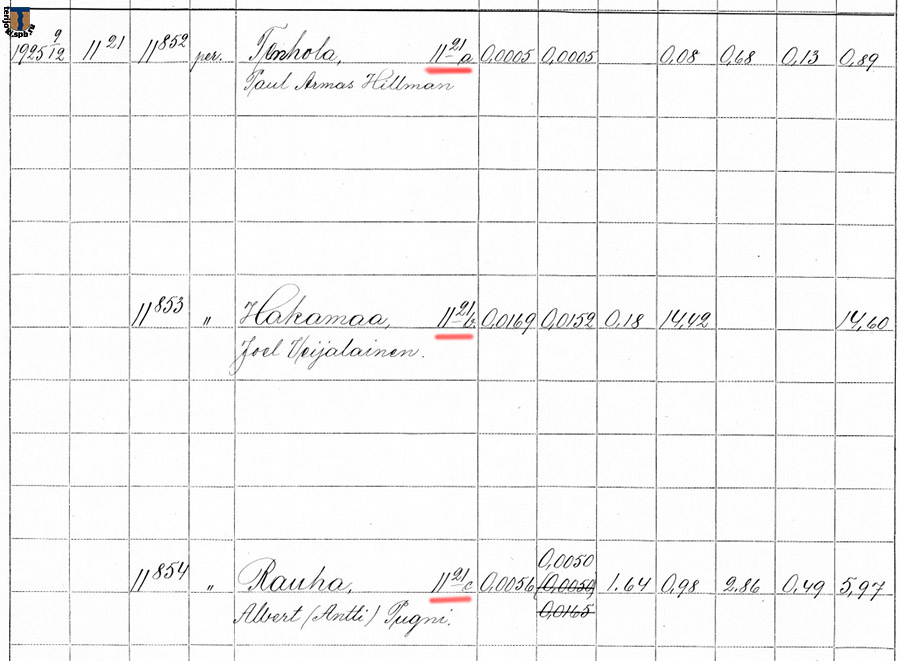 terijoki.spb.ru
1925 9/12 11 21 11 852 per. Tenhola, 11 21 a 0,0005 0,0005 0,08 0,68 0,13 0,89
Paul Armas Hillman
11 853 " Hakamaa, 11 21 b. 0,0169 0,0152 0,18 14,42 14,60
Joel Veijalainen.
0,0050
11 854 " Rauha, 11 21 c 0,0056 (0,0050) 1.64 0,98 2.86 0,49 5,97
Albert (Antti) Pugni. 0,0165